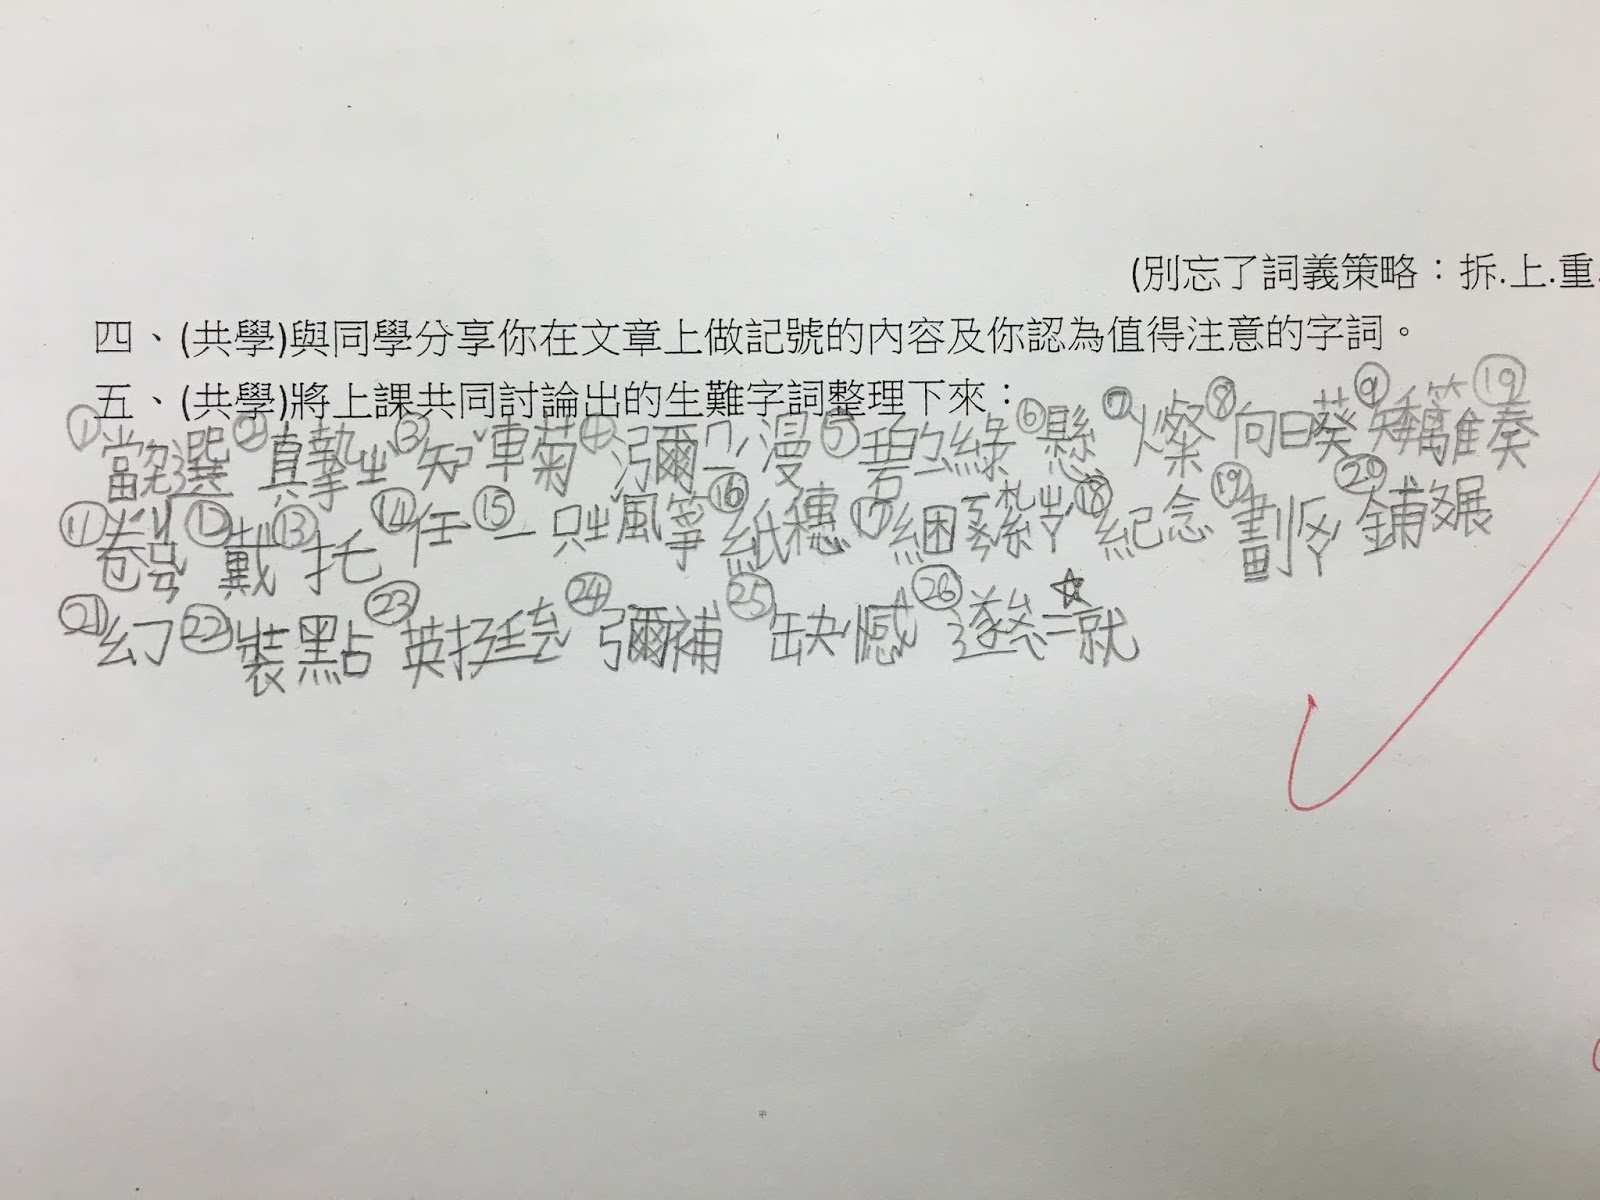 (別忘了詞義策略：拆.上.重.
四、(共學)與同學分享你在文章上做記號的內容及你認為值得注意的字詞。
五、(共學)將上課共同討論出的生難字詞整理下來：
①當選②真摯ㄓˋ③矢車菊④瀰ㄇㄧˊ漫⑤碧ㄅㄧˋ綠⑥懸⑦燦⑧向日葵⑨矮籬雛⑲奏
⑪卷⑫戴⑬托⑭任⑮一只ㄓ風箏⑯紙穗⑰綑紮ㄓㄚˊ⑱紀念⑲劃⑳鋪展
㉑幻㉒裝點㉓英挺㉔彌補㉕缺憾㉖遂☆就